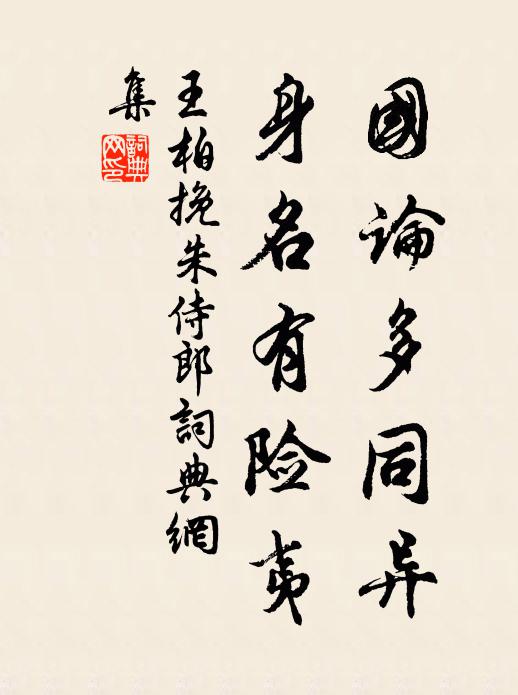 國論多同异
身名有险夷
王柏挽朱侍郎詞典網
集
詞典
网印